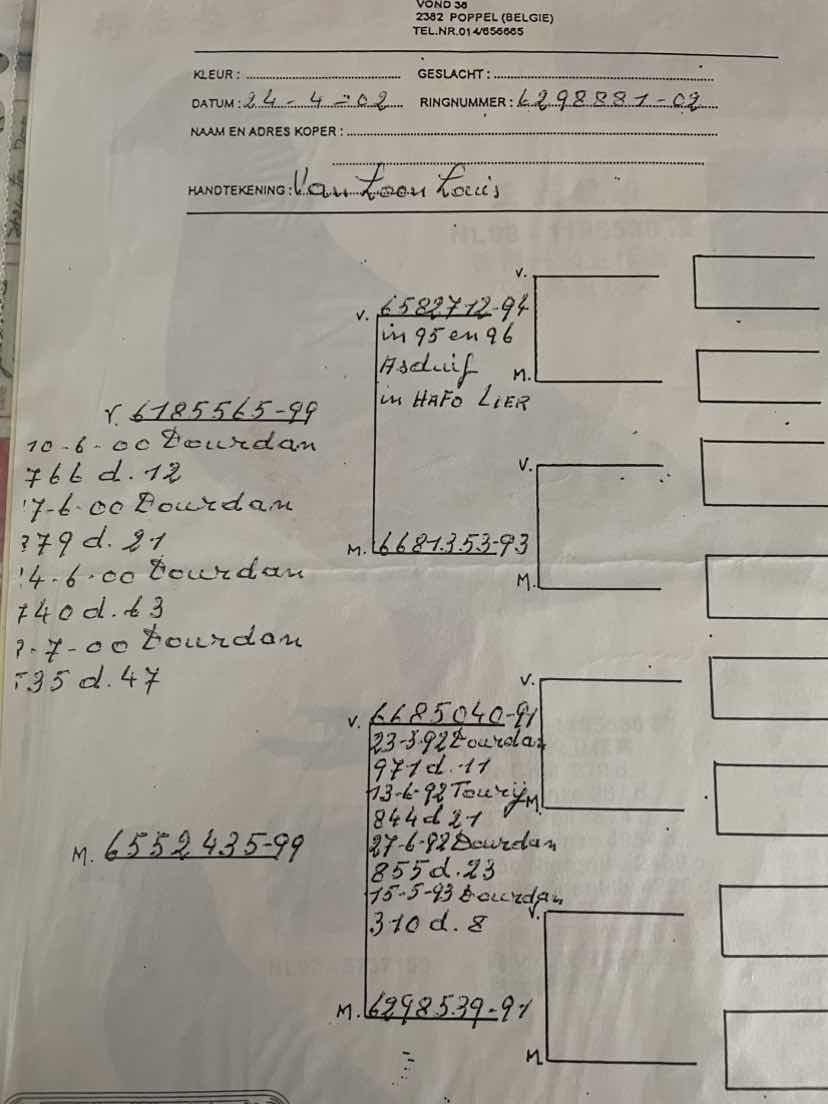 VOND 36
2382 POPPEL (BELGIE)
TEL.NR.014/656665
KLEUR : GESLACHT :
DATUM : 24-4-02 RINGNUMMER : 6298881-02
NAAM EN ADRES KOPER :
HANDTEKENING : Van Loon Louis
V. 6185565-99
10-6-00 Dourdan
766 d. 12
7-6-00 Dourdan
79 d. 21
4-6-00 Dourdan
740 d. 63
-7-00 Dourdan
35 d. 47
M. 6552435-99
V. 6582712-94
in 95 en 96
Asduif
in HAFO LIER
M. 6681353-93
V. 6685040-91
23-5-92 Dourdan
971 d. 11
13-6-92 Toury
844 d 21
27-6-92 Dourdan
855 d. 23
15-5-93 Dourdan
310 d. 8
M. 6298539-91
V.
M.
V.
M.
V.
M.
V.
M.